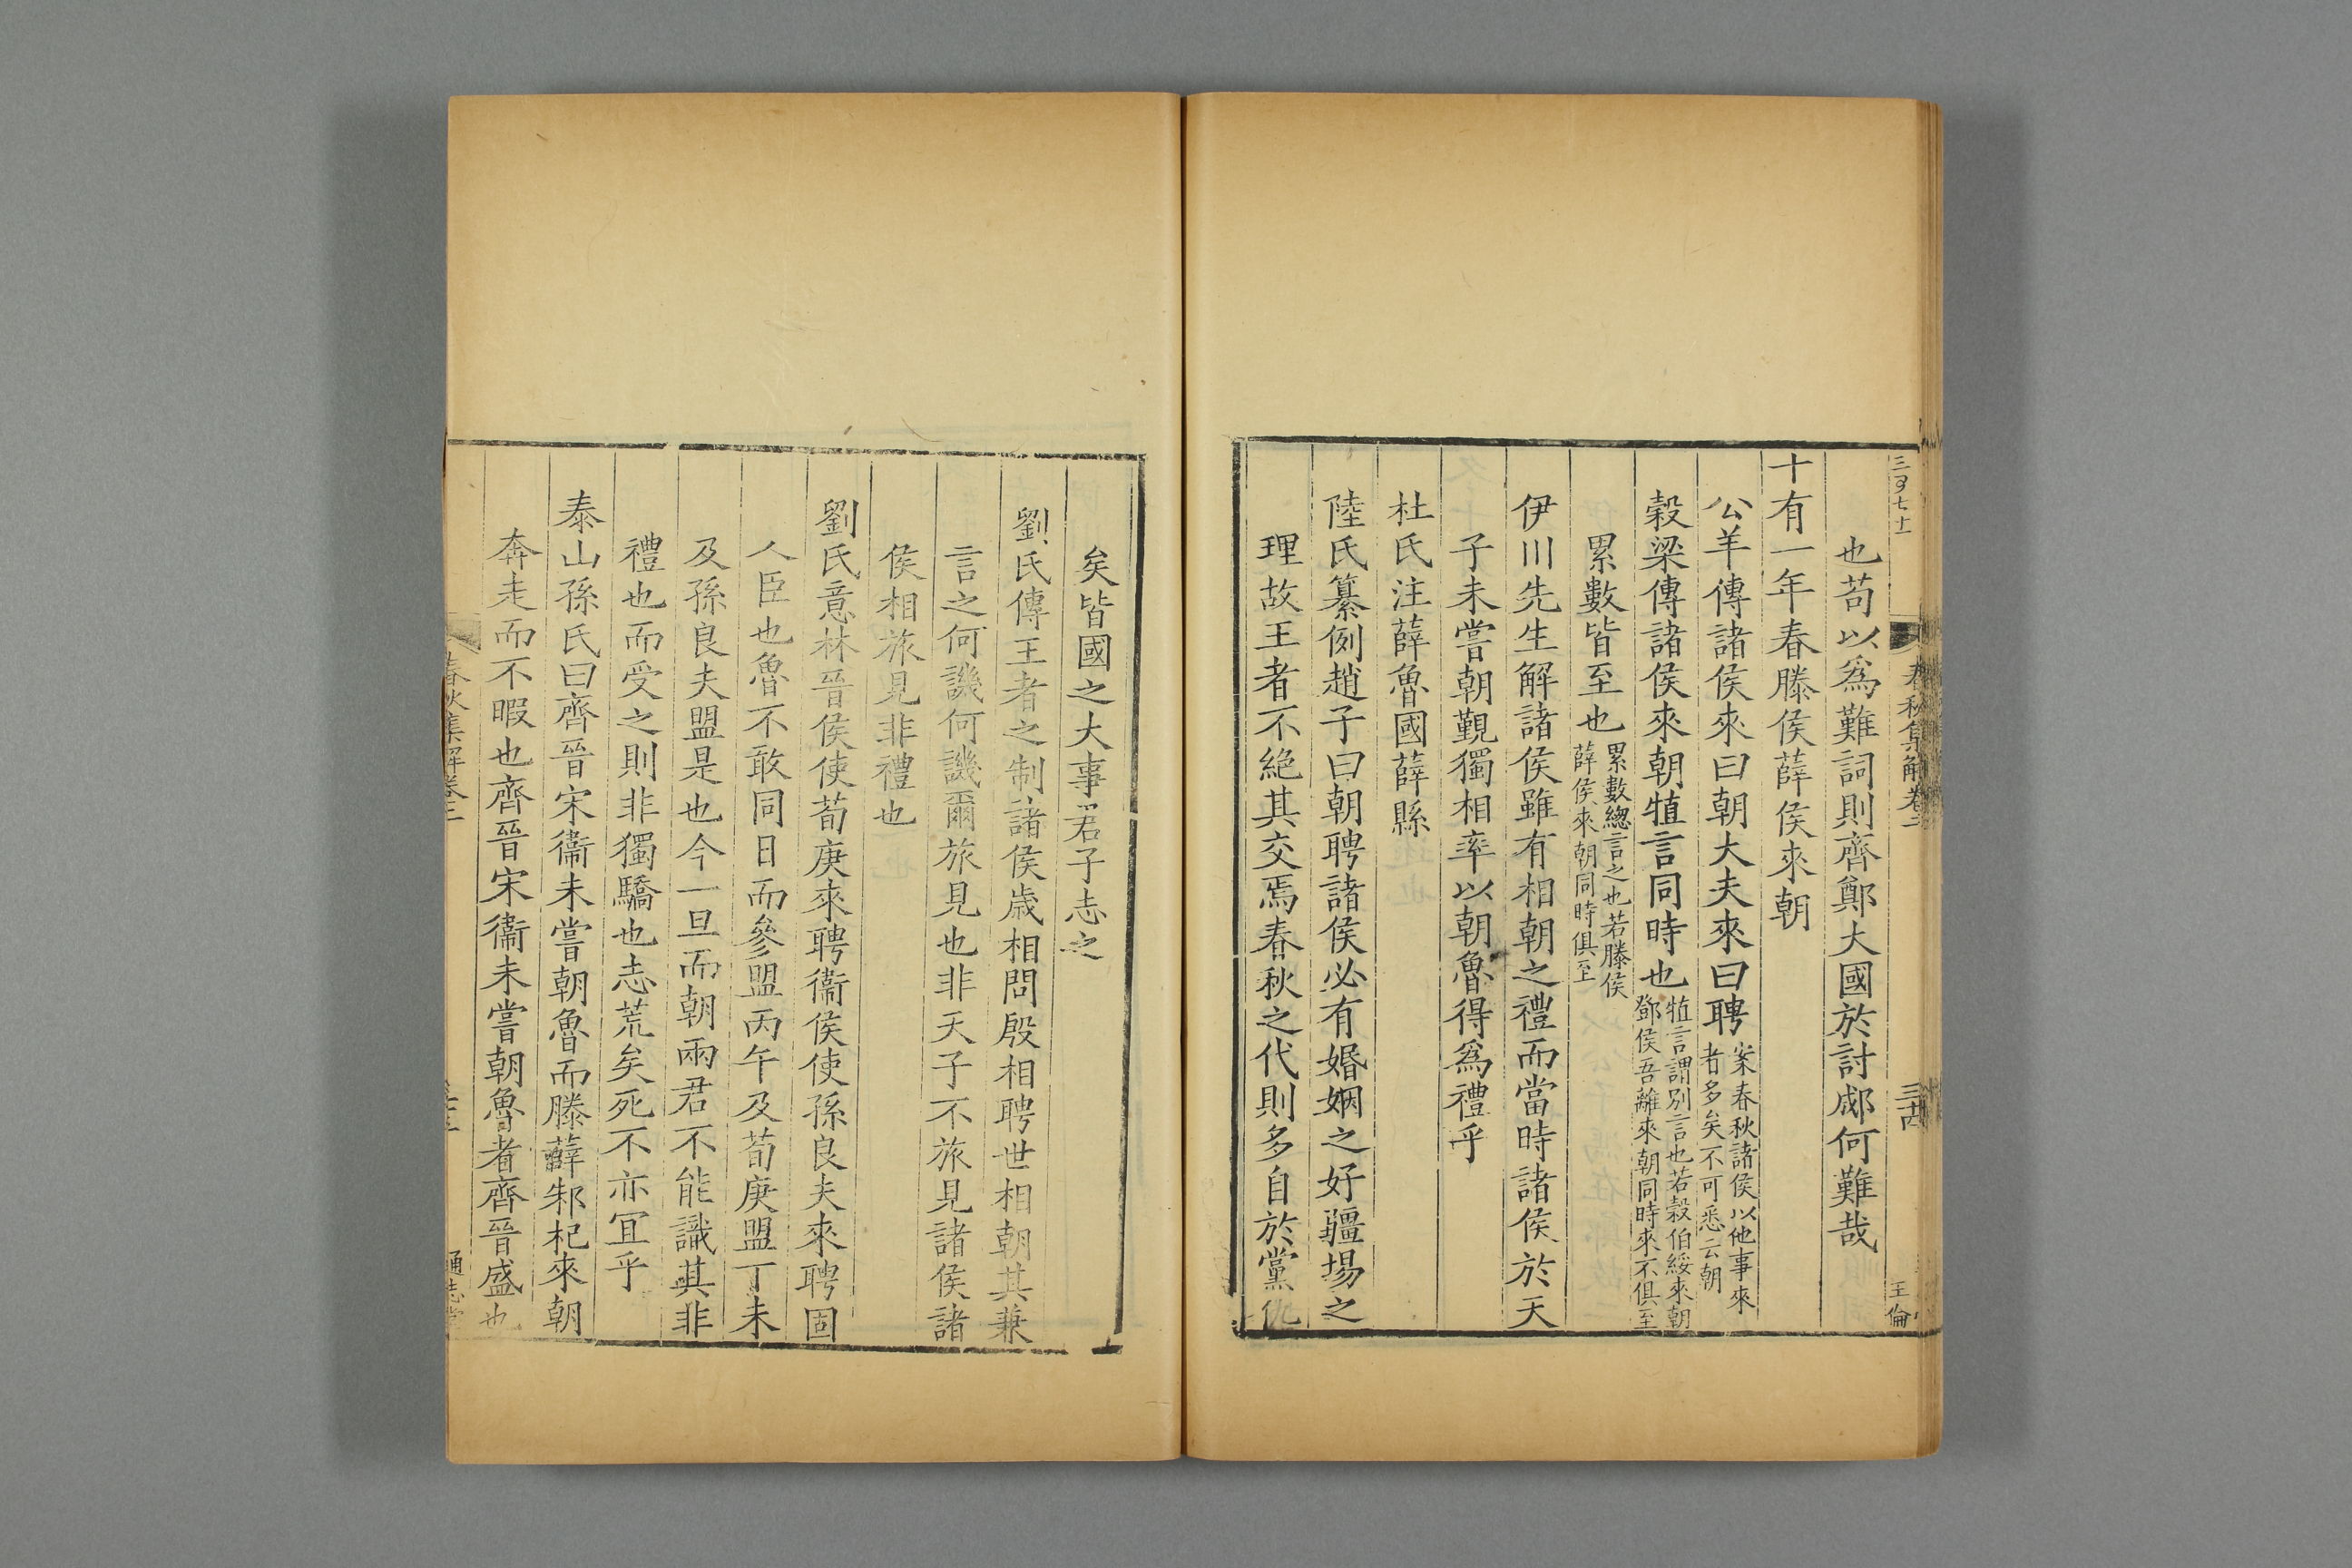 也苟以爲難詞則齊鄭大國於討郕何難哉
十有一年春滕侯薛侯來朝
公羊傳諸侯來曰朝大夫來曰聘案春秋諸侯以他事來者多矣不可悉云朝
榖梁傳諸侯來朝犆言同時也犆言謂別言也若榖伯綏來朝鄧侯吾離來朝同時來不俱至
累數皆至也累數總言之也若滕侯薛侯來朝同時俱至
伊川先生解諸侯雖有相朝之禮而當時諸侯於天
子未嘗朝覲獨相率以朝魯得爲禮乎
杜氏注薛魯國薛縣
陸氏纂例趙子曰朝聘諸侯必有婚姻之好疆場之
理故王者不絶其交焉春秋之代則多自於黨仇
矣皆國之大事君子志之
劉氏傳王者之制諸侯歲相問殷相聘世相朝其兼
言之何譏何譏爾旅見也非天子不旅見諸侯諸
侯相旅見非禮也
劉氏意林晉侯使荀庚來聘衞侯使孫良夫來聘固
人臣也魯不敢同日而參盟丙午及荀庚盟丁未
及孫良夫盟是也今一旦而朝兩君不能識其非
禮也而受之則非獨驕也志荒矣死不亦宜乎
泰山孫氏曰齊晉宋衞未嘗朝魯而滕薛邾杞來朝
奔走而不暇也齊晉宋衞未嘗朝魯者齊晉盛也
春秋集解卷二
三十四
王倫
春秋集解卷二
通志堂